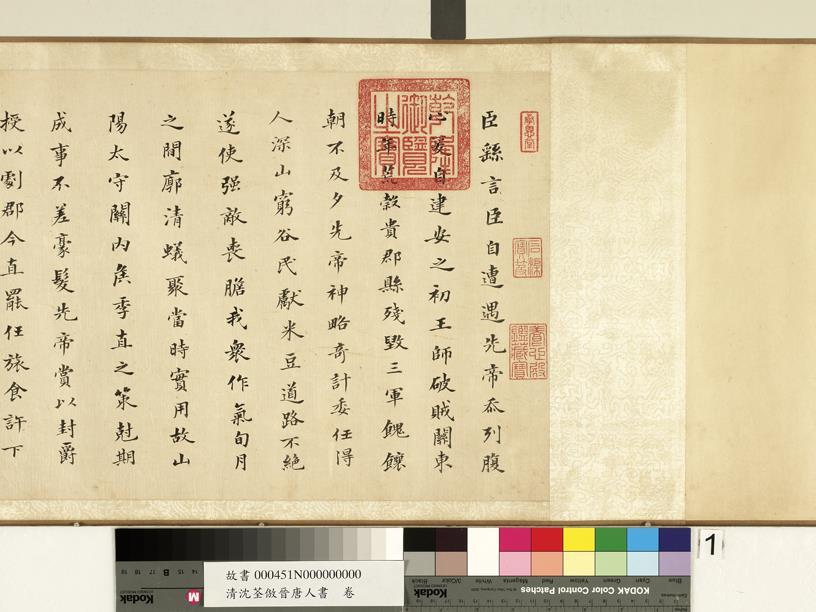 臣繇言臣自遭遇先帝忝列腹
心爰自建安之初王師破賊關東
時年荒穀貴郡縣殘毀三軍餽饟
朝不及夕先帝神略奇計委任得
人深山窮谷民獻米豆道路不絕
遂使强敵喪膽我衆作氣旬月
之間廓清蟻聚當時實用故山
陽太守關内矦季直之策尅期
成事不差豪髮先帝賞以封爵
授以劇郡今直罷任旅食許下
乾隆御覽之寶
養心殿鑑藏寶
故書 000451N000000000
清沈荃倣晉唐人書 卷
Kodak
KODAK Color Control Patches
Blue Cyan Green Yellow Red Magenta White 3/Color Black
1